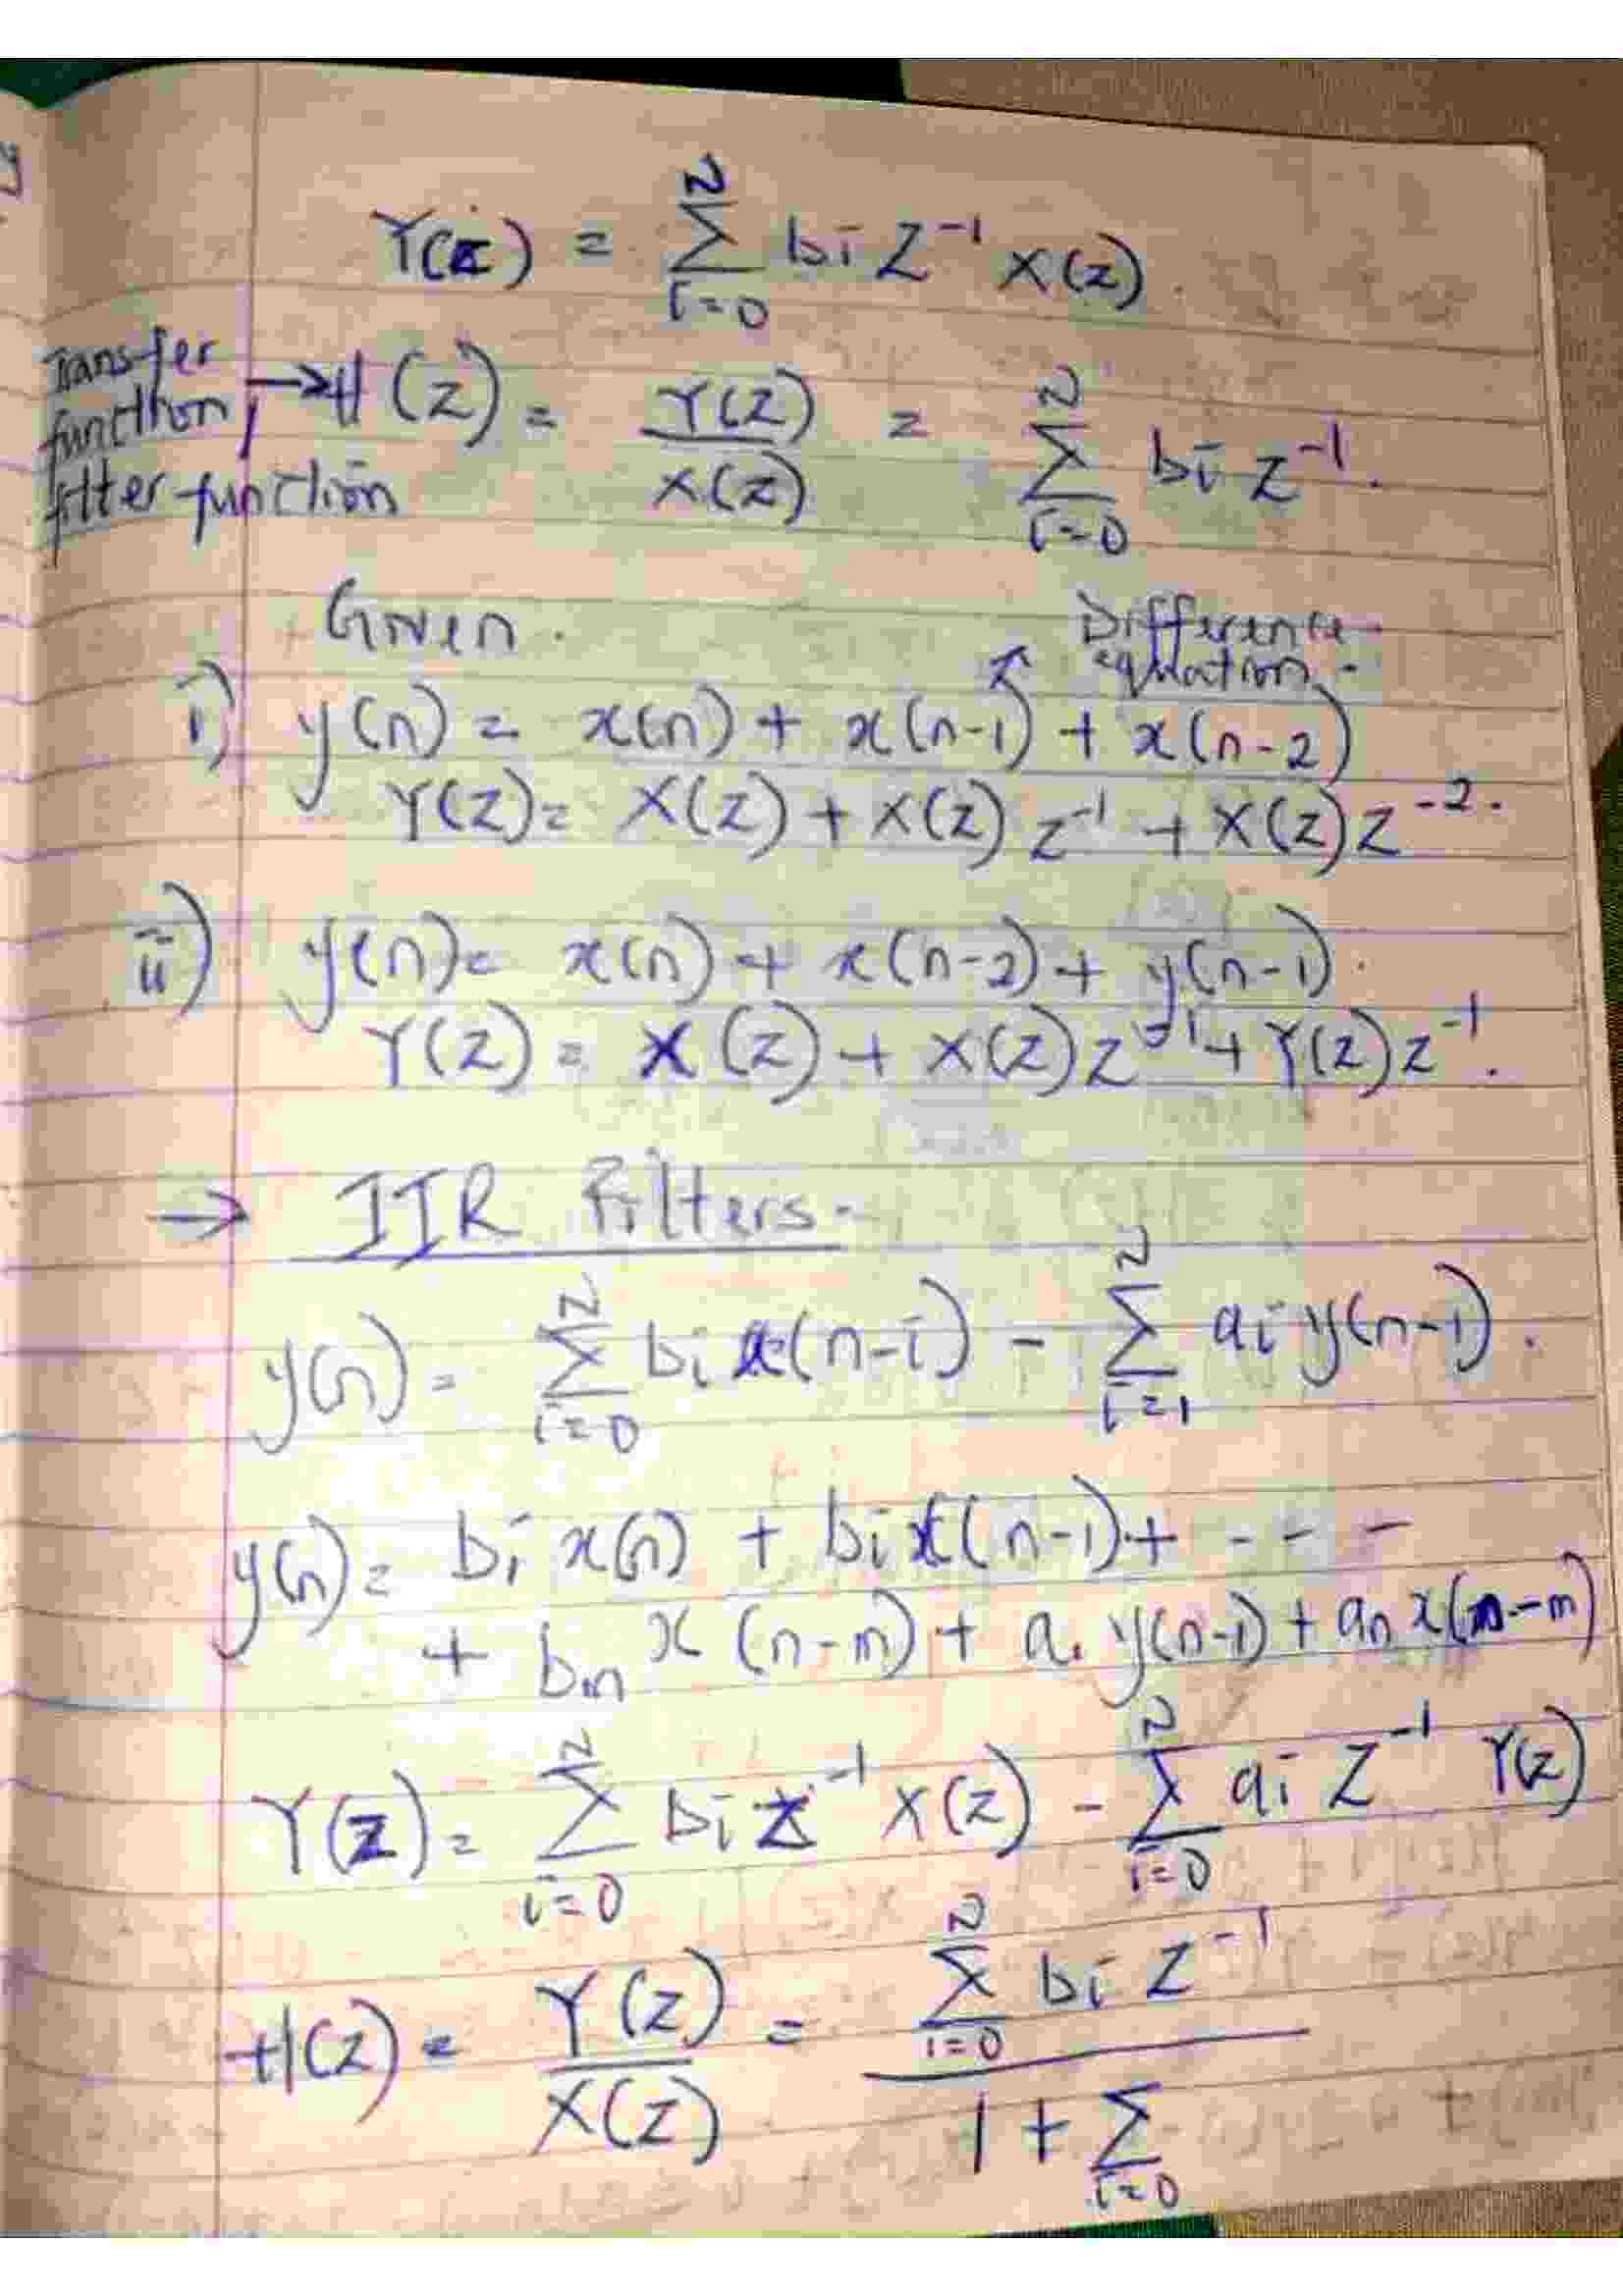 Y(z) = N∑i=0 bi Z^-1 X(z).
Transfer function, filter function → H(z) = Y(z)/X(z) = N∑i=0 bi Z^-1.
Given. Difference equation.
i) y(n) = x(n) + x(n-1) + x(n-2)
Y(z) = X(z) + X(z) z^-1 + X(z) z^-2.
ii) y(n) = x(n) + x(n-2) + y(n-1).
Y(z) = X(z) + X(z) z^-1 + Y(z) z^-1.
→ IIR Filters.
y(n) = N∑i=0 bi x(n-i) - N∑i=1 ai y(n-1).
y(n) = bi x(n) + bi x(n-1) + - - -
+ bm x(n-m) + a1 y(n-1) + an x(n-m)
Y(z) = N∑i=0 bi z^-1 X(z) - N∑i=0 ai Z^-1 Y(z)
H(z) = Y(z)/X(z) = N∑i=0 bi Z^-1 / 1 + ∑i=0